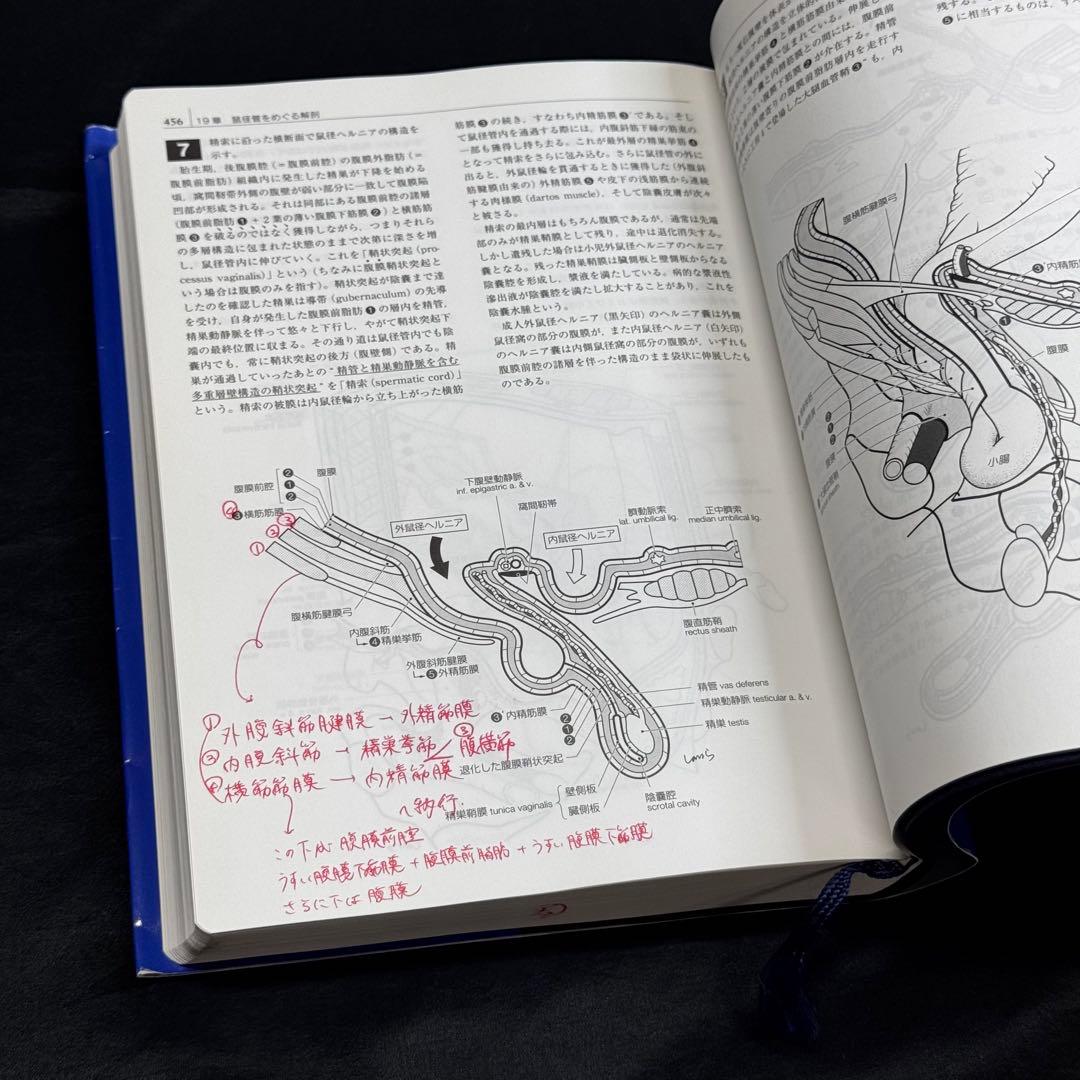 456 19章 鼠径管をめぐる解剖
7 精索に沿った横断面で鼠径ヘルニアの構造を
示す。
胎生期,後腹膜腔(=腹膜前腔)の腹膜外脂肪(=
腹膜前脂肪)組織内に発生した精巣が下降を始める
頃,窩間靭帯外側の腹壁が弱い部分に一致して腹膜陥
凹部が形成される。それは同部にある腹膜前腔の諸層
(腹膜前脂肪❶+2葉の薄い腹膜下筋膜❷)と横筋筋
膜❸を破るのではなく獲得しながら,つまりそれら
の多層構造に包まれた状態のままで次第に深さを増
し,鼠径管内に伸びていく。これを「鞘状突起(pro-
cessus vaginalis)」という(ちなみに腹膜鞘状突起と
いう場合は腹膜のみを指す)。鞘状突起が陰嚢まで達
したのを確認した精巣は導帯(gubernaculum)の先導
を受け,自身が発生した腹膜前脂肪❶の層内を精管,
精巣動静脈を伴って悠々と下行し,やがて鞘状突起下
端の最終位置に収まる。その通り道は鼠径管内でも陰
嚢内でも,常に鞘状突起の後方(腹壁側)である。精
巣が通過していったあとの“精管と精巣動静脈を含む
多重層壁構造の鞘状突起”を「精索(spermatic cord)」
という。精索の被膜は内鼠径輪から立ち上がった横筋
筋膜❸の続き,すなわち内精筋膜❸'である。そし
て鼠径管内を通過する際には,内腹斜筋下縁の筋束の
一部も獲得し持ち去る。これが最外層の精巣挙筋❹
となって精索をさらに包み込む。さらに鼠径管の外に
出ると,外鼠径輪を貫通するときに獲得した(外腹斜
筋腱膜由来の)外精筋膜❺や皮下の浅筋膜から連続
する肉様膜(dartos muscle),そして陰嚢皮膚が次々
と被さる。
精索の最内層はもちろん腹膜であるが,通常は先端
部のみが精巣鞘膜として残り,途中は退化消失する。
しかし遺残した場合は小児外鼠径ヘルニアのヘルニア
嚢となる。残った精巣鞘膜は臓側板と壁側板からなる
陰嚢腔を形成し,漿液を満たしている。病的な漿液性
滲出液が陰嚢腔を満たし拡大することがあり,これを
陰嚢水腫という。
成人外鼠径ヘルニア(黒矢印)のヘルニア嚢は外側
鼠径窩の部分の腹膜が,また内鼠径ヘルニア(白矢印)
のヘルニア嚢は内側鼠径窩の部分の腹膜が,いずれも
腹膜前腔の諸層を伴った構造のまま袋状に伸展したも
のである。
腹膜前腔
❷
❶
❷
腹膜
④
❸横筋筋膜
① ② ③
外鼠径ヘルニア
下腹壁動静脈
inf. epigastric a. & v.
窩間靭帯
内鼠径ヘルニア
臍動脈索
lat. umbilical lig.
正中臍索
median umbilical lig.
腹横筋腱膜弓
内腹斜筋
❹精巣挙筋
外腹斜筋腱膜
❺外精筋膜
腹直筋鞘
rectus sheath
精管 vas deferens
精巣動静脈 testicular a. & v.
精巣 testis
❸'内精筋膜
❷
❶
❷
退化した腹膜鞘状突起
精巣鞘膜 tunica vaginalis
壁側板
臓側板
陰嚢腔
scrotal cavity
しんいち
①外腹斜筋腱膜→外精筋膜
②内腹斜筋→精巣挙筋/③腹横筋
④横筋筋膜→内精筋膜
へ移行.
この下は腹膜前腔
うすい腹膜下筋膜+腹膜前脂肪+うすい腹膜下筋膜
さらに下は腹膜
腹横筋腱膜弓
❸'内精筋膜
❶
腹膜
小腸
❷
❶
❷
腹膜